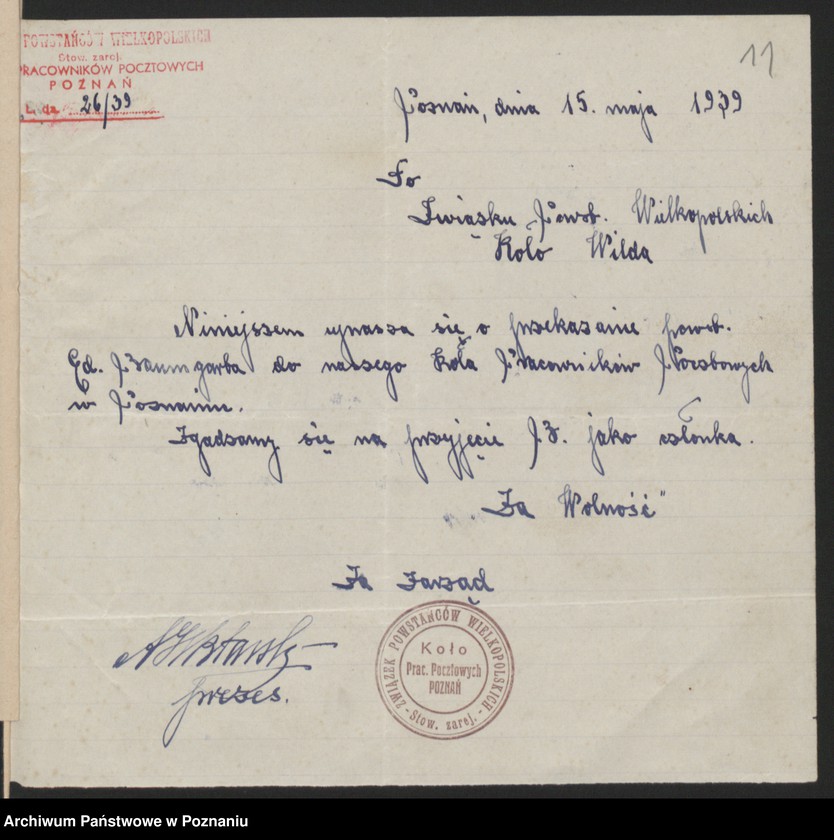 POWSTAŃCÓW WIELKOPOLSKICH
Stow. zarej.
PRACOWNIKÓW POCZTOWYCH
POZNAŃ
L. dz. 26/39
11
Poznań, dnia 15. maja 1939
Do
Związku Powst. Wielkopolskich
Koło Wilda
Niniejszem uprasza się o przekazanie powst.
Ed. Baumgarta do naszego Koła Pracowników Pocztowych
w Poznaniu.
Zgadzamy się na przyjęcie J. B. jako członka.
Za Wolność"
Za Zarząd
prezes.
ZWIĄZEK POWSTAŃCÓW WIELKOPOLSKICH
Koło
Prac. Pocztowych
POZNAŃ
- Stow. zarej. -
Archiwum Państwowe w Poznaniu